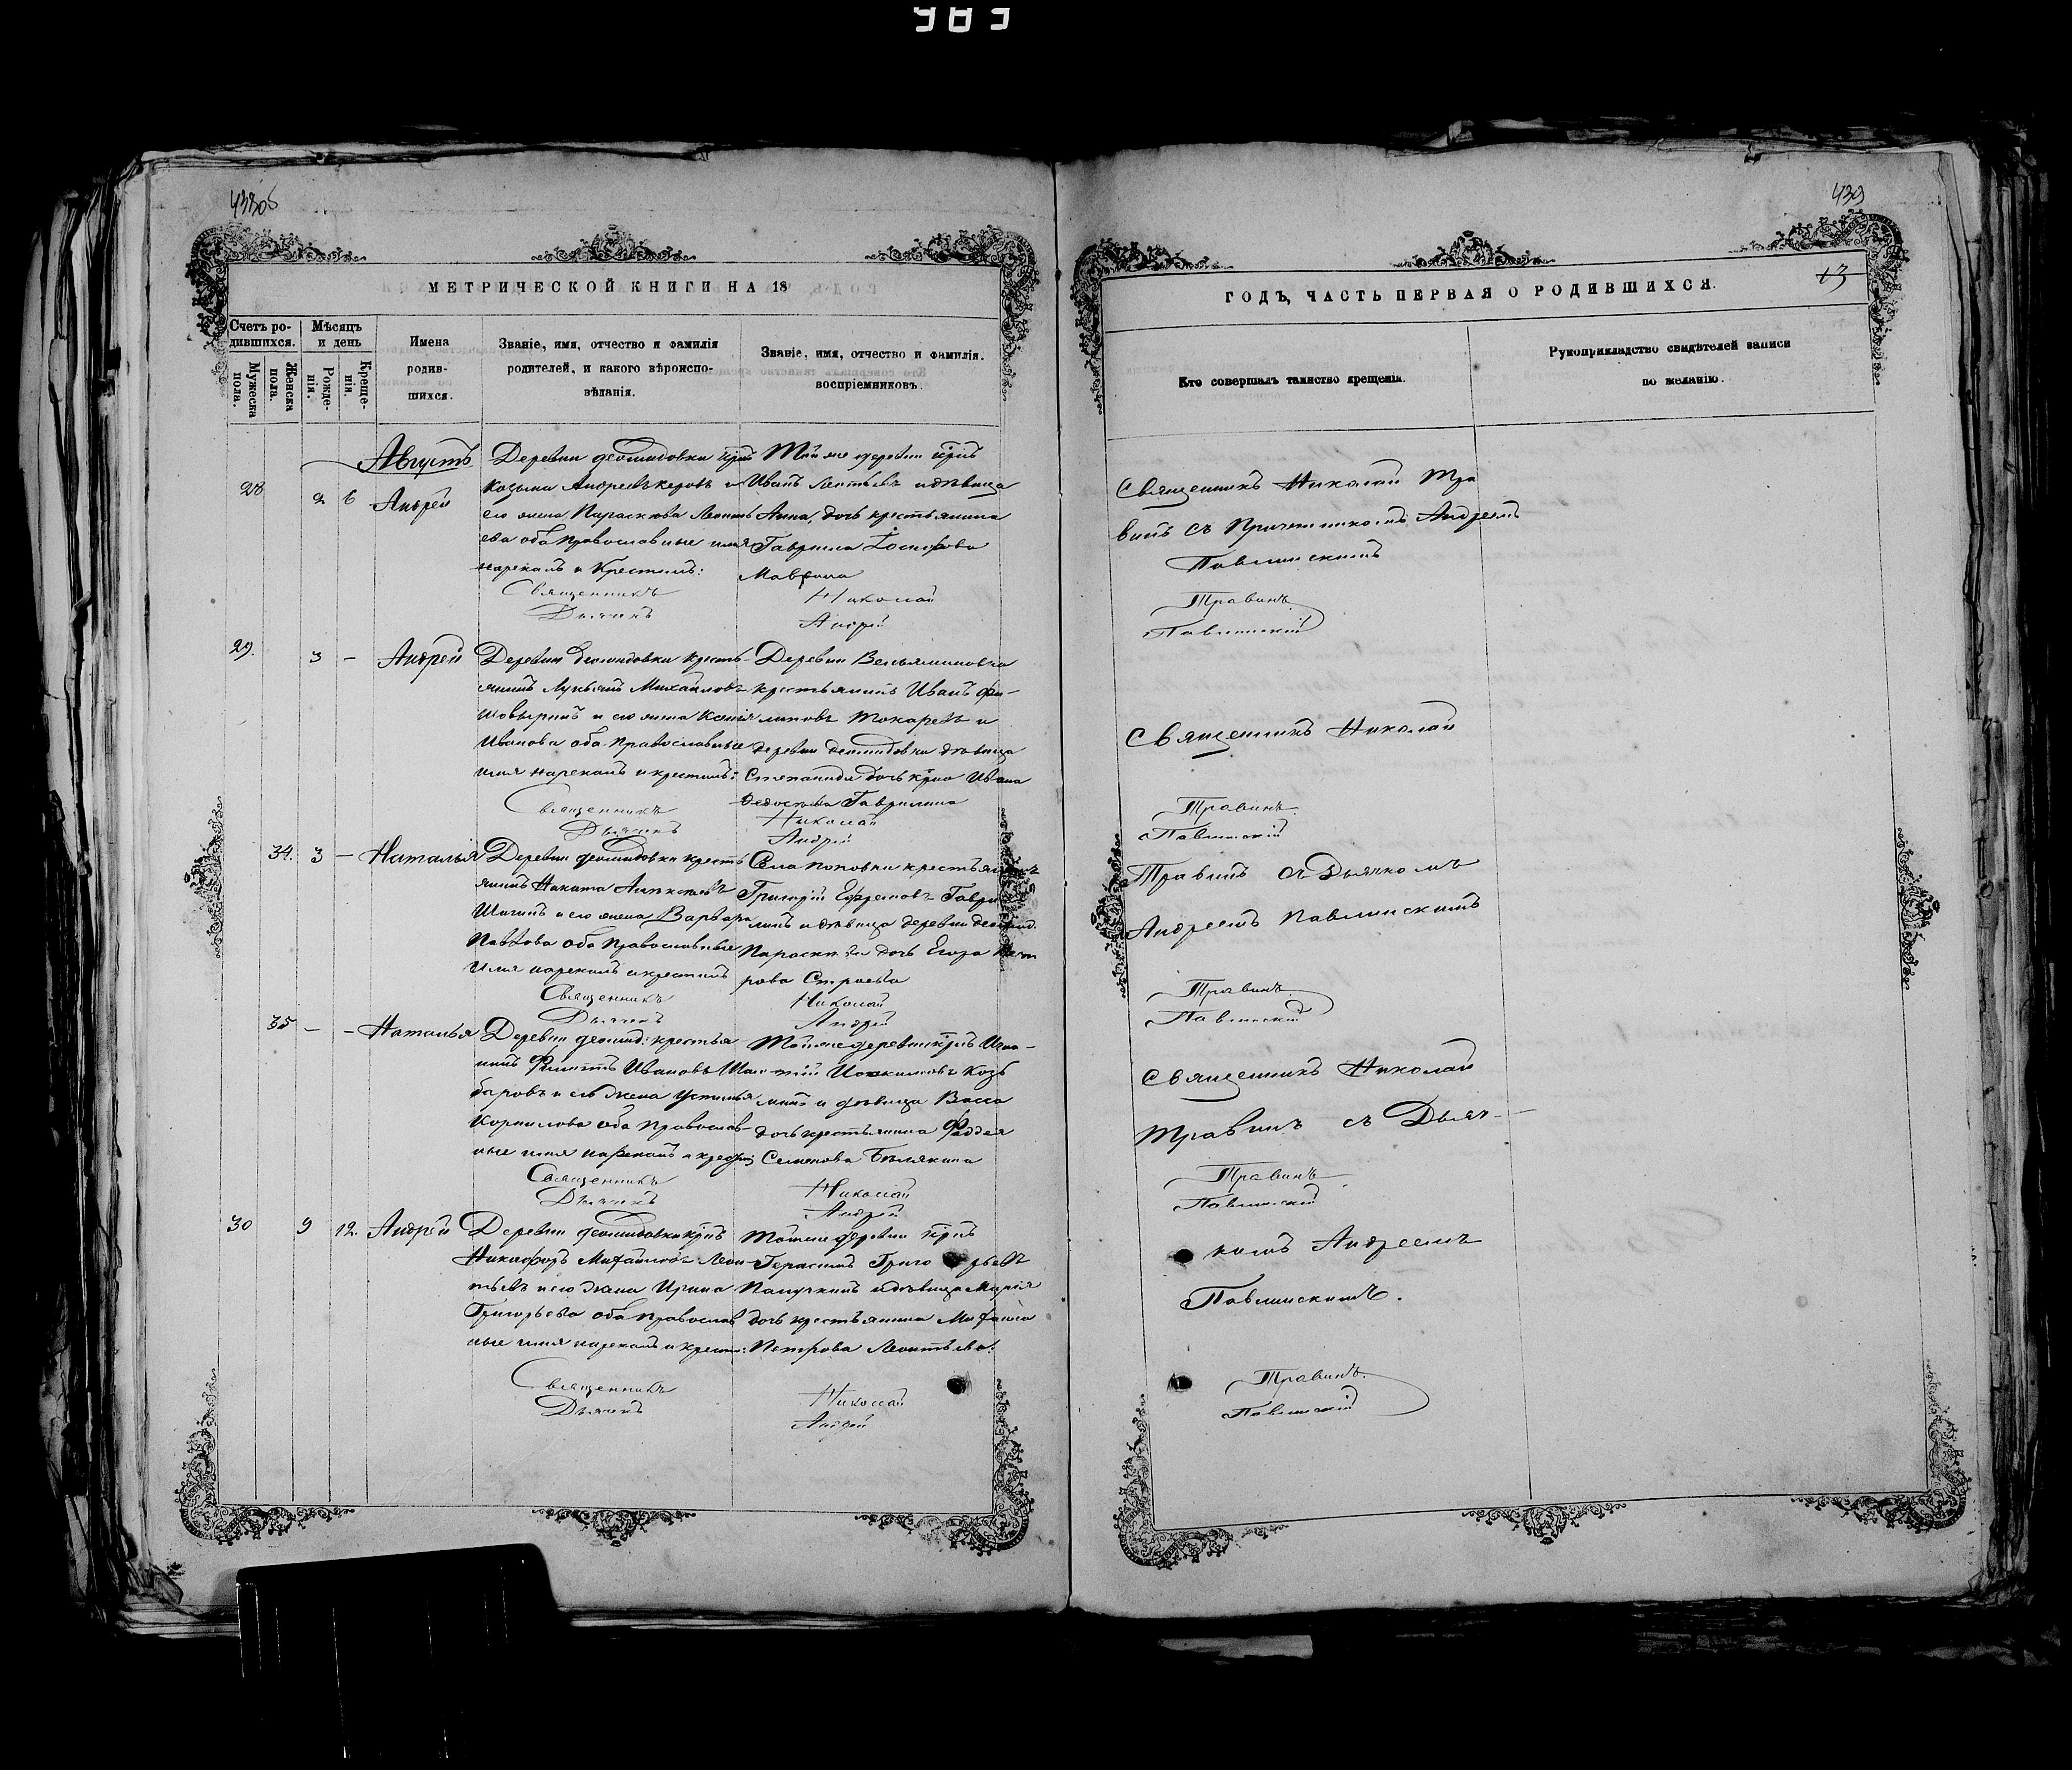 383
438об
439
МЕТРИЧЕСКОЙ КНИГИ НА 18
ГОДЪ, ЧАСТЬ ПЕРВАЯ О РОДИВШИХСЯ.
13
Счетъ ро-
дившихся.
Мужеска
пола.
Женска
пола.
Мѣсяцъ
и день
Рожде-
нія.
Креще-
нія.
Имена
родив-
шихся.
Званіе, имя, отчество и фамилія
родителей, и какого вѣроиспо-
вѣданія.
Званіе, имя, отчество и фамилія.
воспріемниковъ.
Кто совершалъ таинство крещенія.
Рукоприкладство свидѣтелей записи
по желанію.
Августъ
28
2 6
Андрей
Деревни
Козьма Андреевъ и
его жена Параскева Леонть
ева оба православные имя
нарекалъ и крестилъ:
Священникъ
Дьячекъ
Той же деревни
Иванъ Леонтьевъ и дѣвица
Анна, дочь крестьянина
Гавріила Іосифова
Николай
Андрей
Священникъ Николай Тра
винъ съ Причетникомъ Андреемъ
Павлинскимъ
Травинъ
Павлинскій
29.
3 -
Андрей
Деревни кресть-
янинъ Лукьянъ Михайловъ
и его жена Ксенія
Иванова оба православные
имя нарекалъ и крестилъ:
Священникъ
Дьячекъ
Деревни Вельяминовка
крестьянинъ Иванъ Фи-
липовъ Токаревъ и
деревни дѣвица
Степанида дочь Ивана
Гаврилина
Николай
Андрей
Священникъ Николай
Травинъ
Павлинскій
34.
3 -
Наталья
Деревни кресть
янинъ Никита
Шигинъ и его жена Варвара
Павлова оба православные
имя нарекалъ и крестилъ
Священникъ
Дьячекъ
Села Поповки крестьянинъ
Григорій Ефремовъ Гаври
линъ и дѣвица деревни
дочь Егора Пет
рова Строева
Николай
Андрей
Травинъ съ Дьячкомъ
Андреемъ Павлинскимъ
Травинъ
Павлинскій
35
- -
Наталья
Деревни крестья
нинъ Ивановъ Ша
баровъ и его жена Устинья
Корнилова оба православ-
ные имя нарекалъ и
Священникъ
Дьячекъ
Той же деревни Игна-
тій Козь
минъ и дѣвица Васса
дочь крестьянина Фаддея
Семенова Бѣлякина
Николай
Андрей
Священникъ Николай
Травинъ съ Дьяч-
Травинъ
Павлинскій
30
9 12.
Андрей
Деревни
Никифоръ Михайловъ Леон-
тьевъ и его жена Ирина
Григорьева оба православ
ные имя нарекалъ и крести:
Священникъ
Дьячекъ
Той же деревни
Герасимъ Григорьевъ
и дѣвица Марія
дочь крестьянина Михаила
Петрова Леонтьева.
Николай
Андрей
комъ Андреемъ
Павлинскимъ.
Травинъ.
Павлинскій